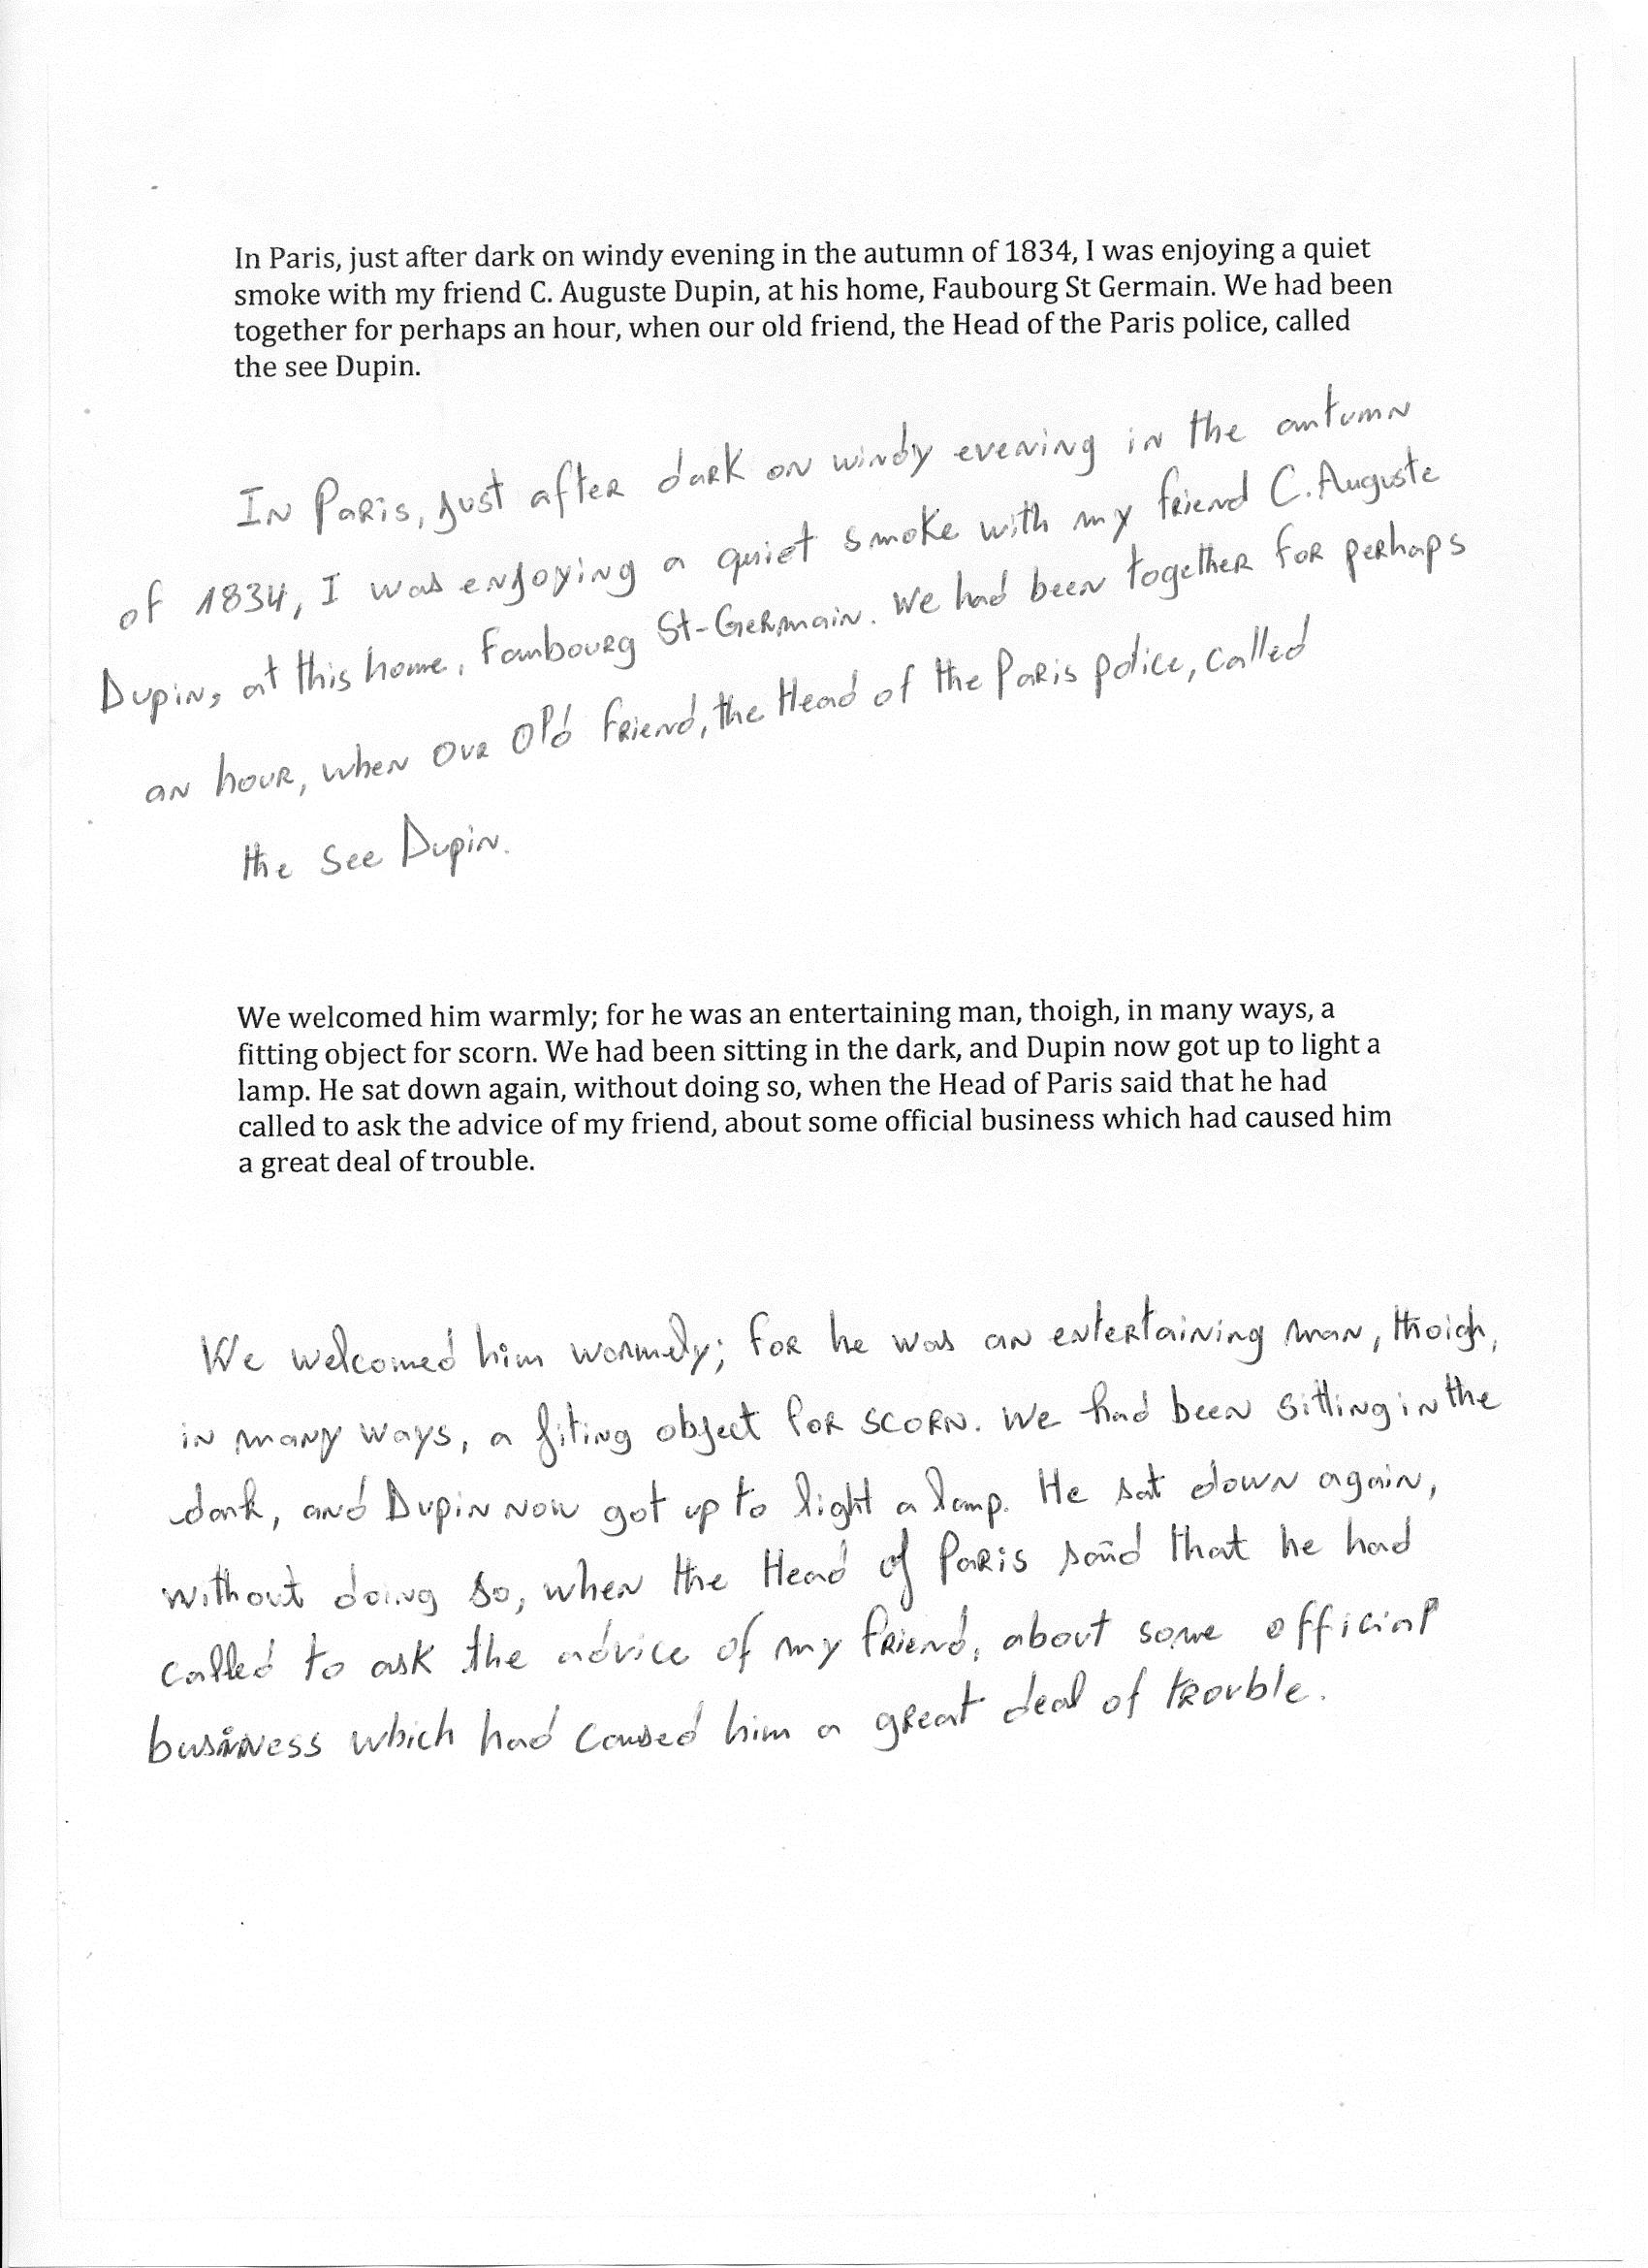 In Paris, just after dark on windy evening in the autumn of 1834, I was enjoying a quiet
smoke with my friend C. Auguste Dupin, at his home, Faubourg St Germain. We had been
together for perhaps an hour, when our old friend, the Head of the Paris police, called
the see Dupin.
In Paris, just after dark on windy evening in the autumn
of 1834, I was enjoying a quiet smoke with my friend C. Auguste
Dupin, at this home, Faubourg St-Germain. We had been together for perhaps
an hour, when our old friend, the Head of the Paris police, called
the see Dupin.
We welcomed him warmly; for he was an entertaining man, thoigh, in many ways, a
fitting object for scorn. We had been sitting in the dark, and Dupin now got up to light a
lamp. He sat down again, without doing so, when the Head of Paris said that he had
called to ask the advice of my friend, about some official business which had caused him
a great deal of trouble.
We welcomed him warmely; for he was an entertaining man, thoigh,
in many ways, a fiting object for scorn. We had been sitting in the
dark, and Dupin now got up to light a lamp. He sat down again,
without doing so, when the Head of Paris said that he had
called to ask the advice of my friend, about some official
business which had caused him a great deal of trouble.